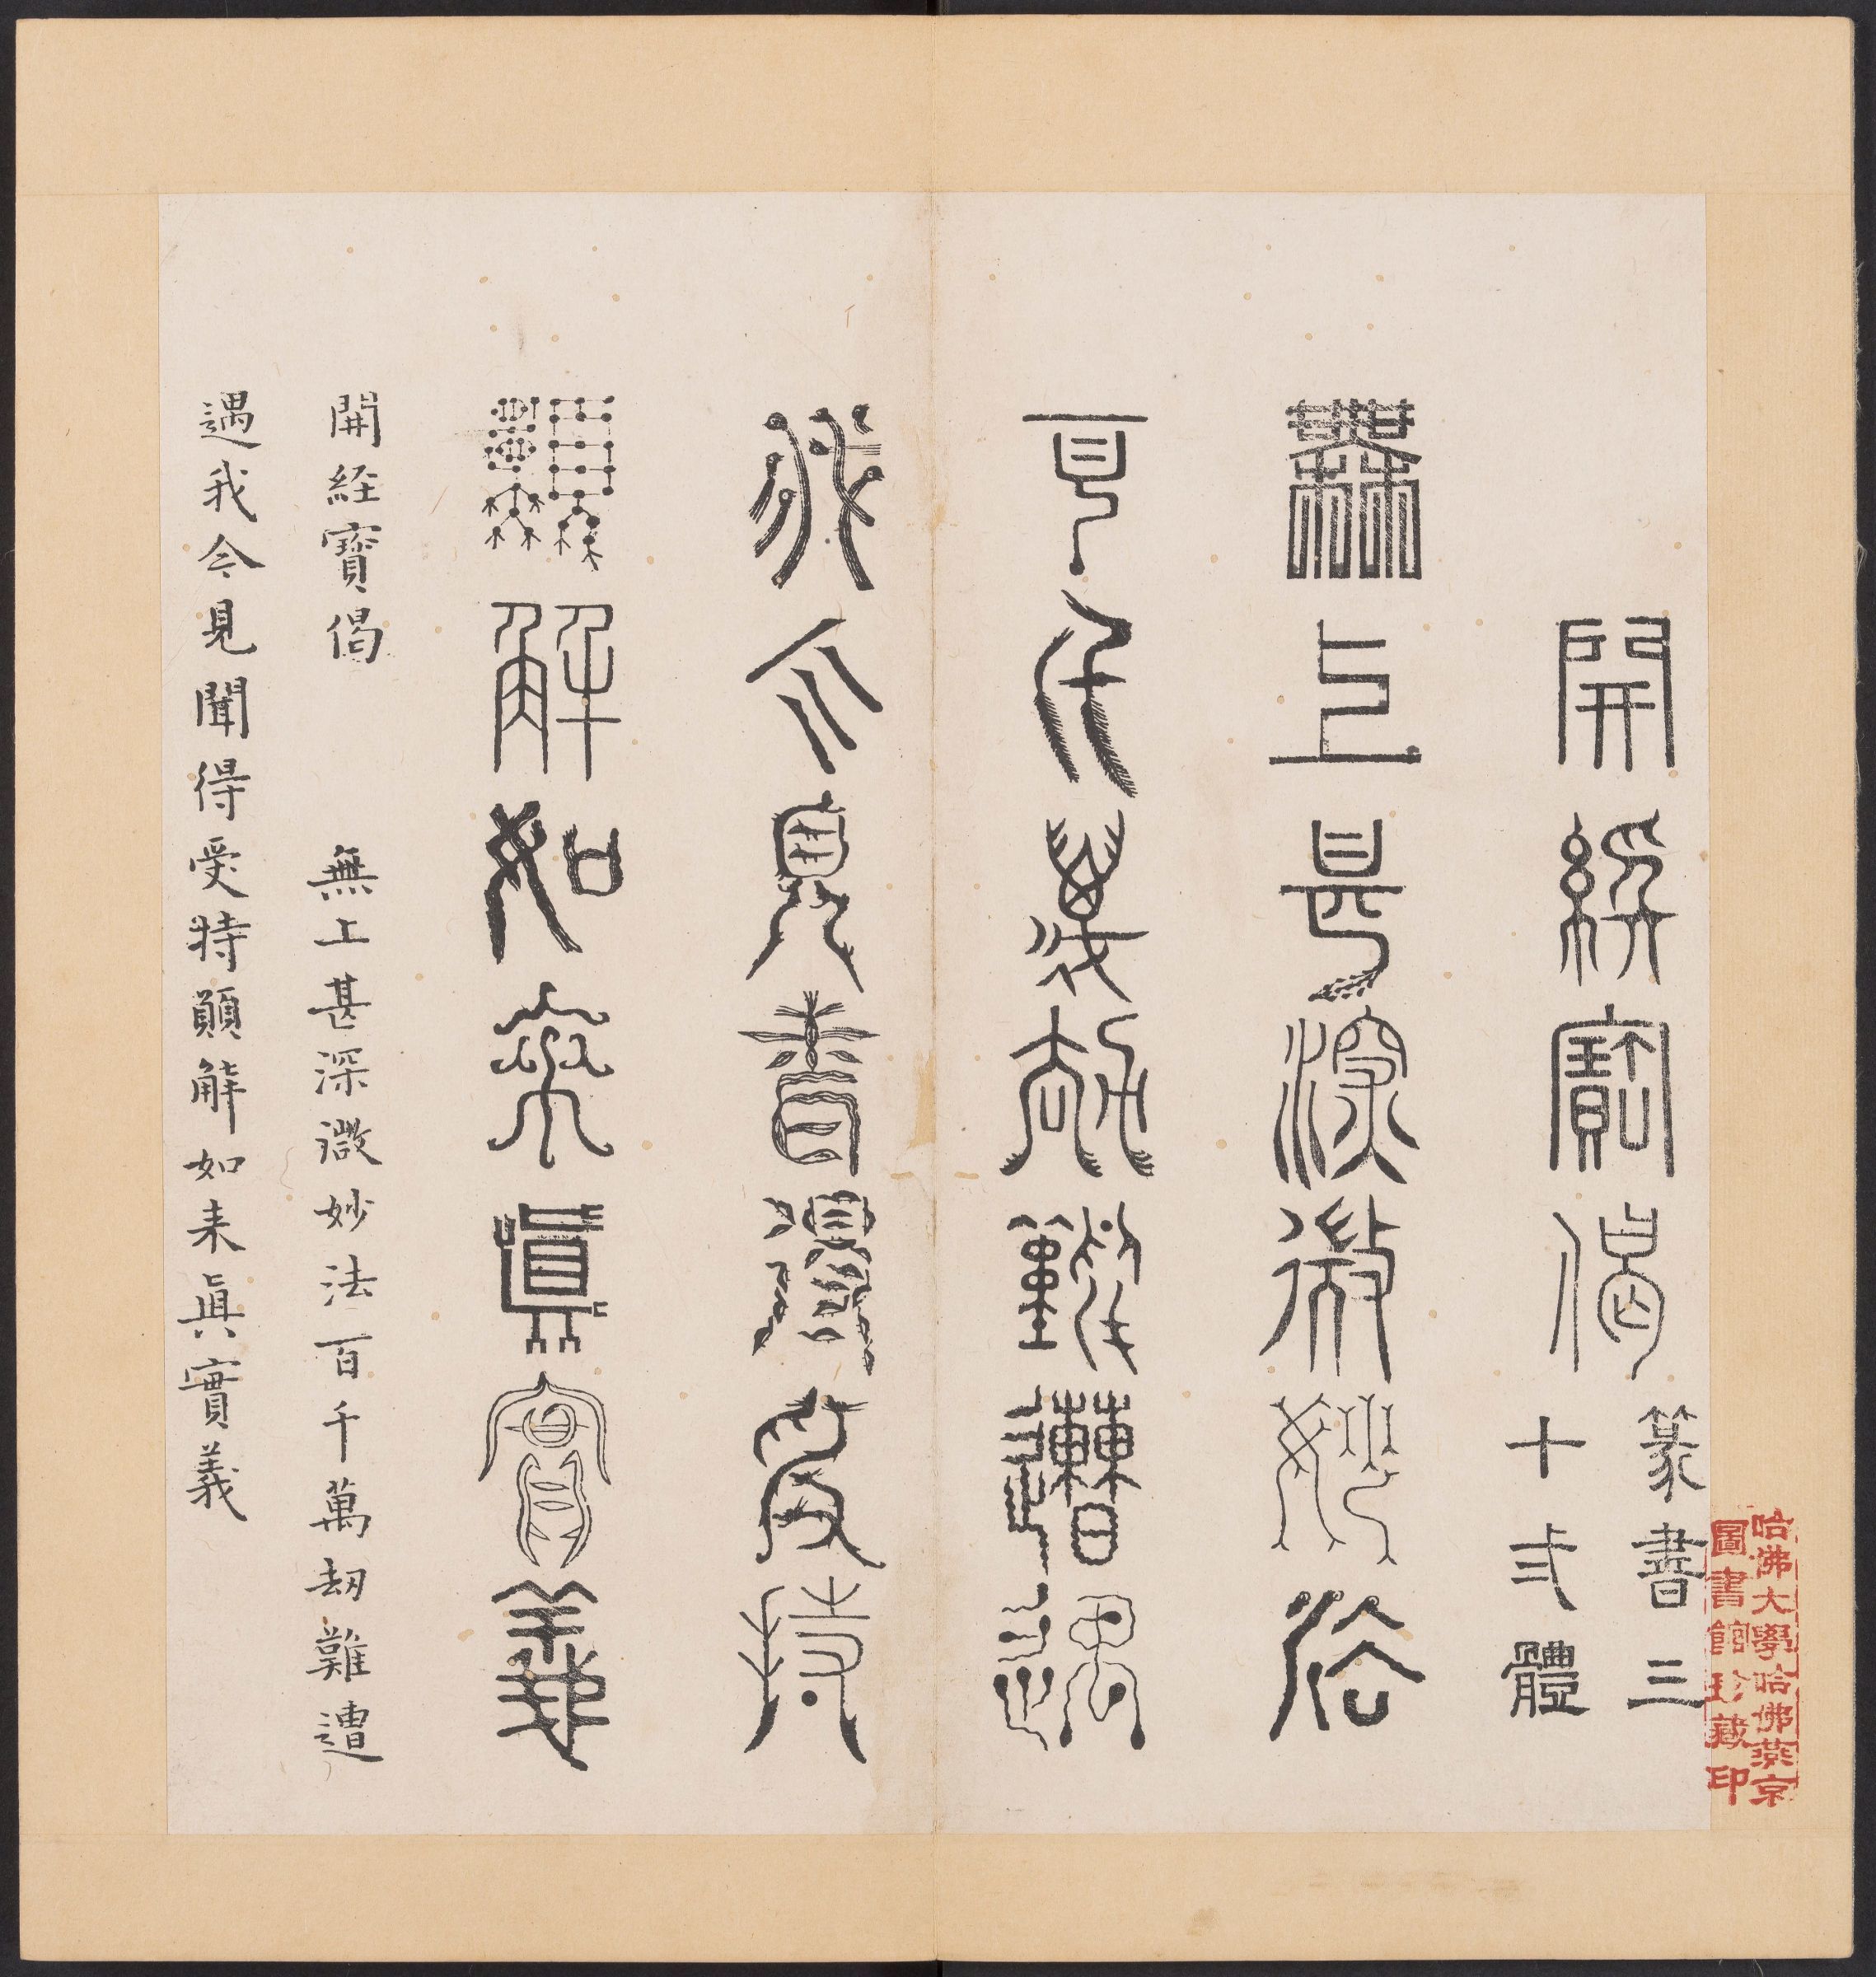 開經寶偈
篆書三
十弎體
無上甚深微妙法
百千萬劫難遭遇
我今見聞得受持
願解如來真實義
開経寳偈 無上甚深微妙法百千萬刼難遭
遇我今見聞得受持願解如来眞實義
哈佛大學哈佛燕京
圖書館珍藏印